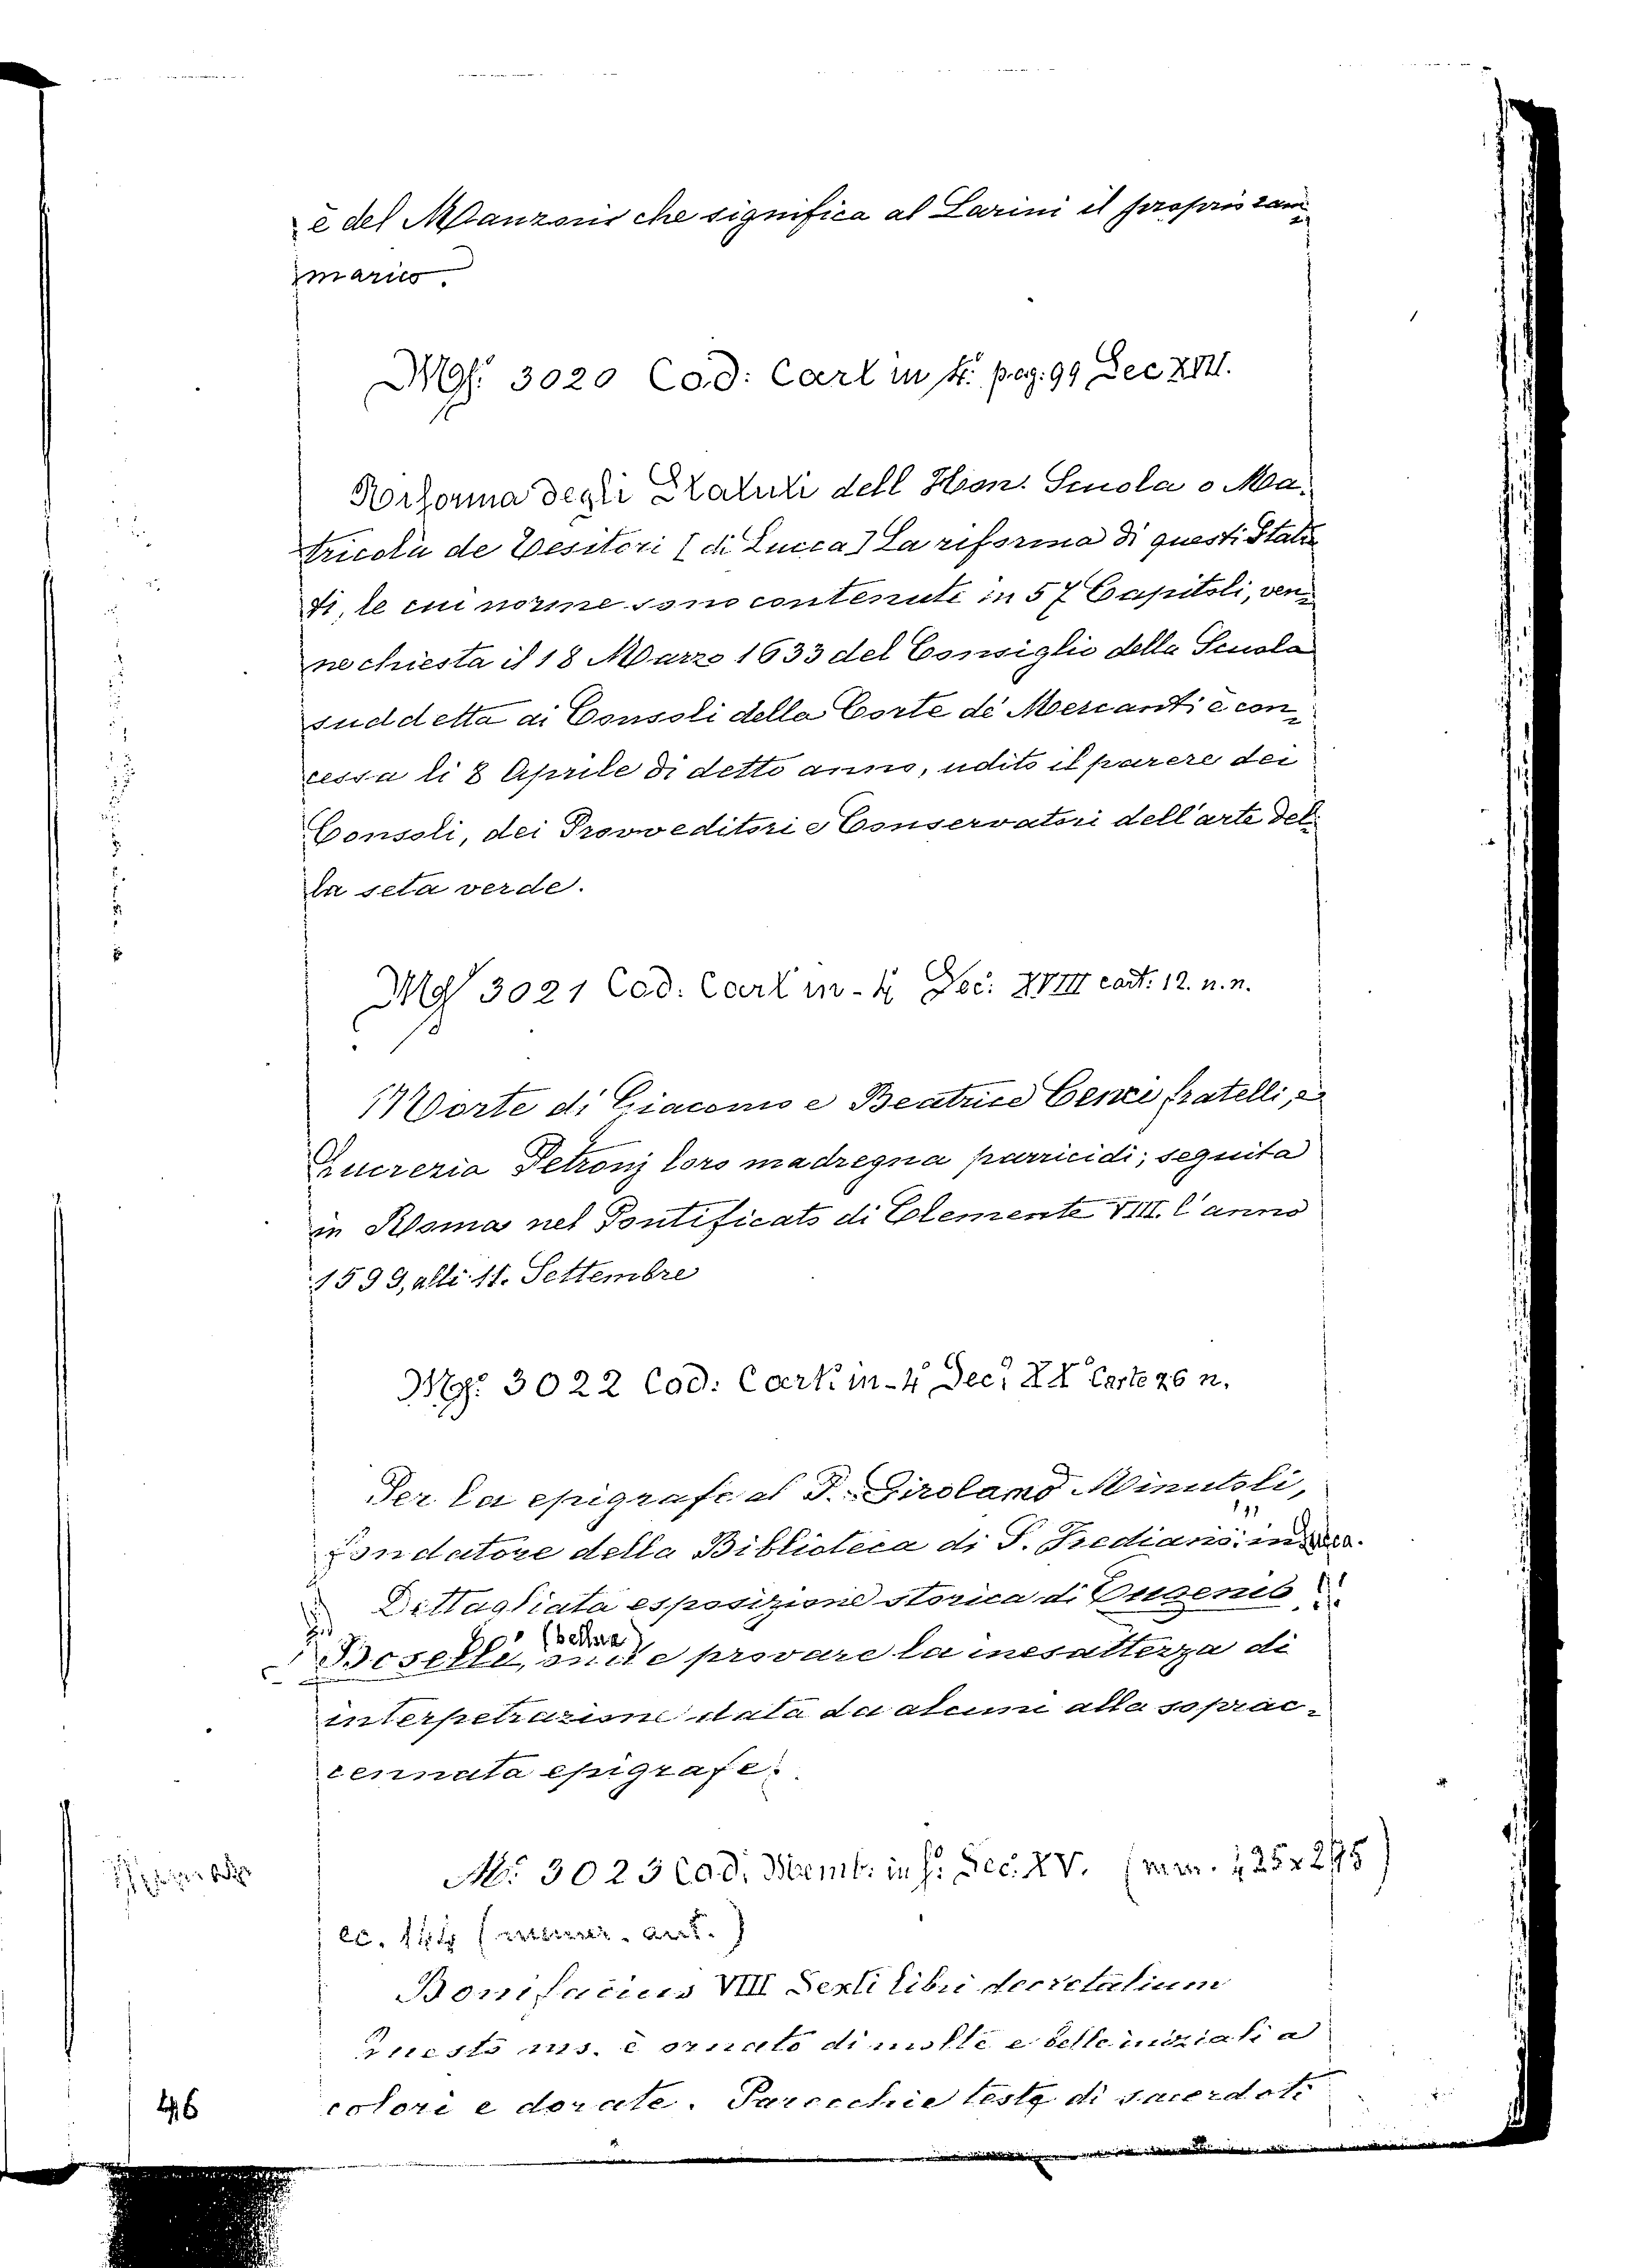 è del Manzoni che significa al Larini il proprio ram
marico.
Ms. 3020 Cod: Cart in 4º pag. 99 Sec XVII.
Riforma degli Statuti dell Hon. Scuola o Ma-
tricola de Tesitori [di Lucca] La riforma di questi Statu
ti, le cui norme sono contenute in 57 Capitoli, ven-
ne chiesta il 18 Marzo 1633 del Consiglio della Scuola
suddetta ai Consoli della Corte de' Mercanti è con-
cessa li 8 Aprile di detto anno, udito il parere dei
Consoli, dei Provveditori e Conservatori dell'arte del-
la seta verde.
Ms 3021 Cod. Cart in-4 Sec: XVIII cart. 12. n.n.
Morte di Giacomo e Beatrice Cenci fratelli, e
Lucrezia Petronj loro madregna parricidi; seguita
in Roma nel Pontificato di Clemente VIII. l'anno
1599, alli 11. Settembre
Ms. 3022 Cod: Cart. in-4º Sec: XX Carte 26 n.
Per la epigrafe al P. Girolamo Minutoli,
fondatore della Biblioteca di S. Frediano in Lucca.
Dettagliata esposizione storica di Eugenio
Boselli, provare la inesattezza di
interpetrazione data da alcuni alla soprac-
cennata epigrafe.
M. 3023 Cod: Memb. in f. Sec. XV. (mm. 425x275)
cc. (numer. ant.)
Bonifacius VIII Sexti libri decretalium
Questo ms. è ornato di molte e belle iniziali a
colori e dorate. Parecchie teste di sacerdoti
46